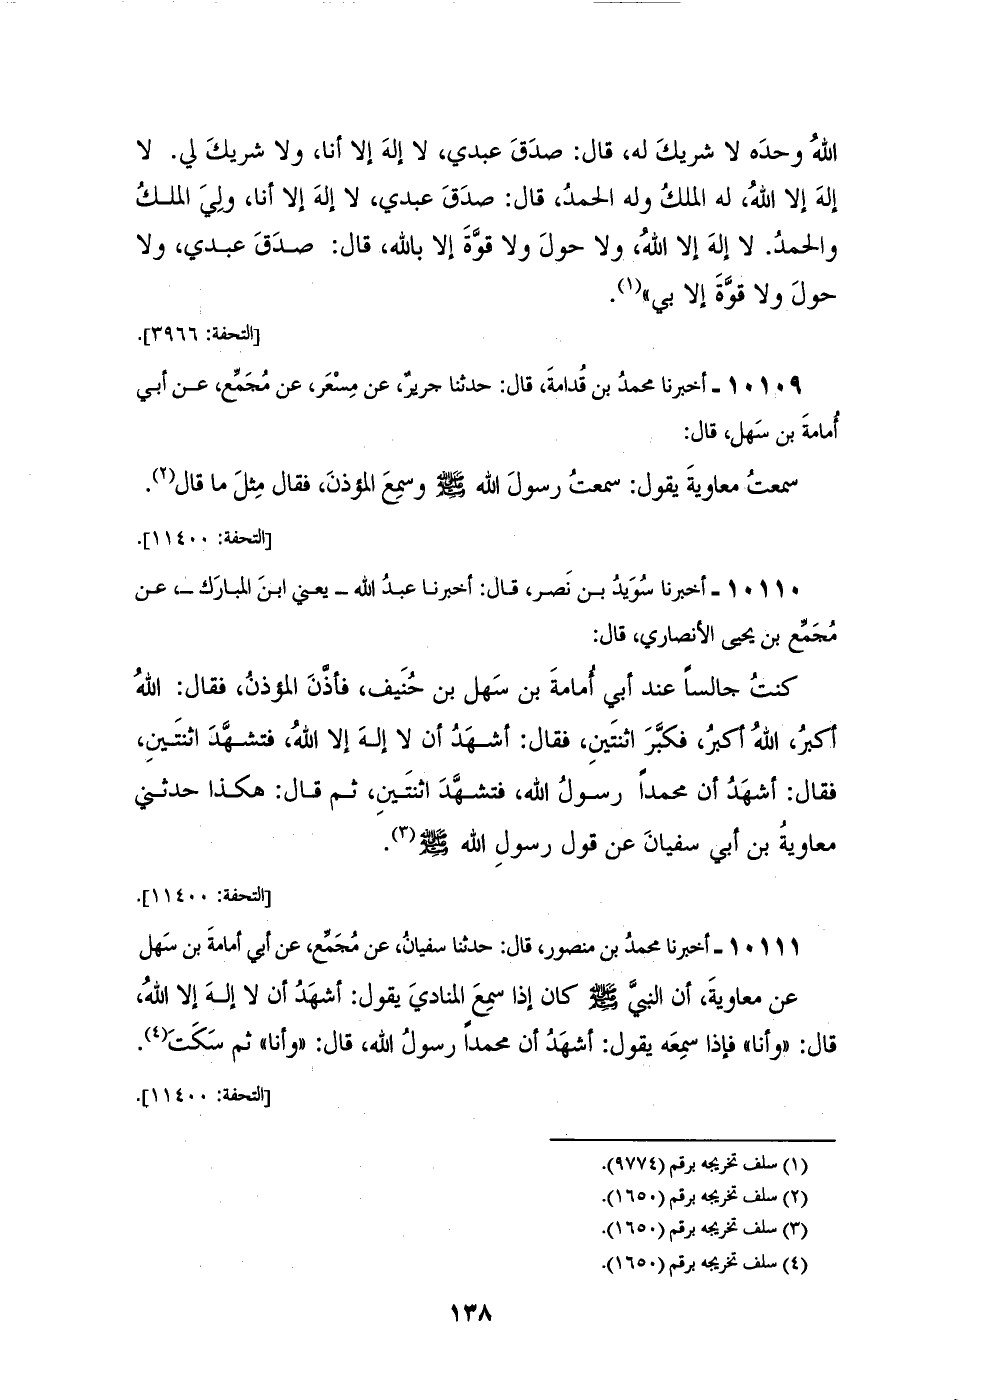 اللهُ وحدَه لا شريكَ له، قال: صدَقَ عبدي، لا إلهَ إلا أنا، ولا شريكَ لي. لا
إلهَ إلا اللهُ، له الملكُ وله الحمدُ، قال: صدَقَ عبدي، لا إلهَ إلا أنا، ولِيَ الملكُ
والحمدُ. لا إلهَ إلا اللهُ، ولا حولَ ولا قوَّةَ إلا بالله، قال: صدَقَ عبدي، ولا
حولَ ولا قوَّةَ إلا بي»(١).
[التحفة: ٣٩٦٦].
١٠١٠٩ ـ أخبرنا محمدُ بن قُدامةَ، قال: حدثنا جريرٌ، عن مِسْعَر، عن مُجَمِّع، عن أبي
أُمامةَ بن سَهل، قال:
سمعتُ معاويةَ يقول: سمعتُ رسولَ الله ﷺ وسمِعَ المؤذنَ، فقال مِثلَ ما قال(٢).
[التحفة: ١١٤٠٠].
١٠١١٠ ـ أخبرنا سُوَيدُ بن نَصر، قال: أخبرنا عبدُ الله ـ يعني ابنَ المبارَك ـ، عن
مُجَمِّع بن يحيى الأنصاري، قال:
كنتُ جالساً عند أبي أُمامةَ بن سَهل بن حُنَيف، فأذَّنَ المؤذنُ، فقال: اللهُ
أكبرُ، اللهُ أكبرُ، فكبَّرَ اثنتَينِ، فقال: أشهَدُ أن لا إلهَ إلا اللهُ، فتشهَّدَ اثنتَينِ،
فقال: أشهَدُ أن محمداً رسولُ الله، فتشهَّدَ اثنتَينِ، ثم قال: هكذا حدثني
معاويةُ بن أبي سفيانَ عن قول رسولِ الله ﷺ(٣).
[التحفة: ١١٤٠٠].
١٠١١١ ـ أخبرنا محمدُ بن منصور، قال: حدثنا سفيانُ، عن مُجَمِّع، عن أبي أمامةَ بن سَهل
عن معاويةَ، أن النبيَّ ﷺ كان إذا سمِعَ المناديَ يقول: أشهَدُ أن لا إلهَ إلا اللهُ،
قال: «وأنا» فإذا سمِعَه يقول: أشهَدُ أن محمداً رسولُ الله، قال: «وأنا» ثم سَكَتَ(٤).
[التحفة: ١١٤٠٠].
(١) سلف تخريجه برقم (٩٧٧٤).
(٢) سلف تخريجه برقم (١٦٥٠).
(٣) سلف تخريجه برقم (١٦٥٠).
(٤) سلف تخريجه برقم (١٦٥٠).
١٣٨